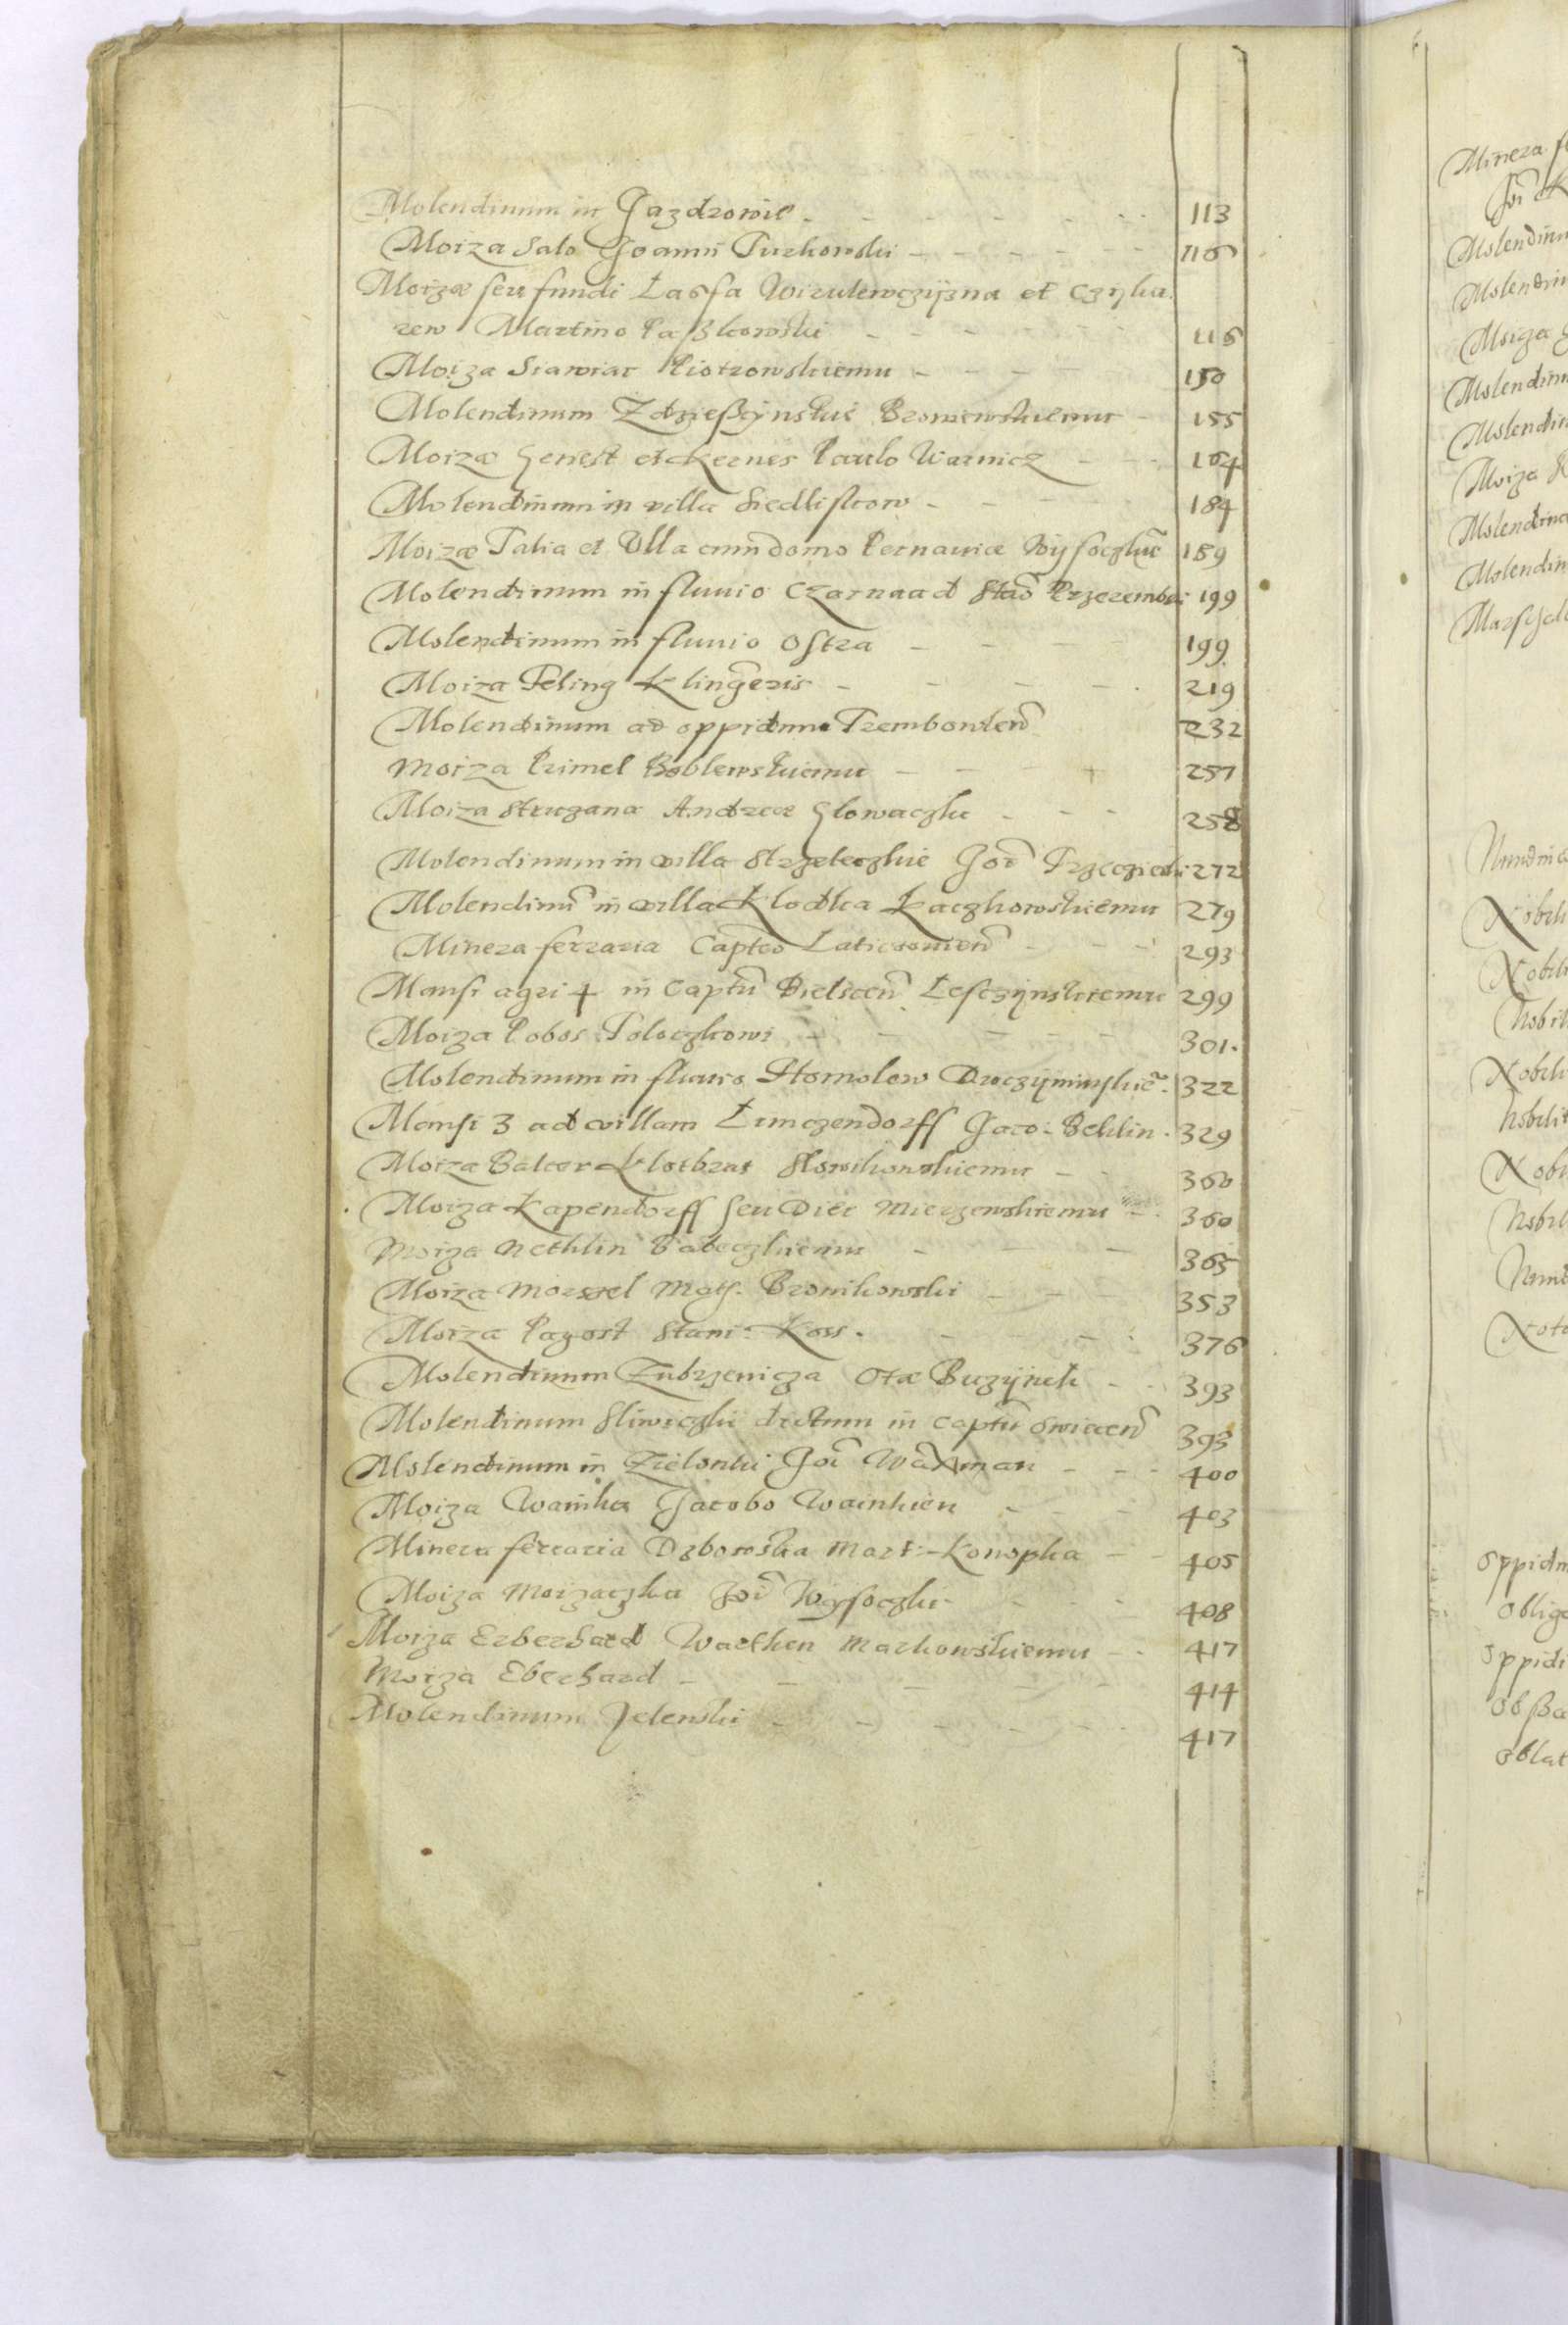 Molendinum in Jazdrowie - - - - 113
Moiza Salo Joanni Turkowski - - - - 116
Moizæ seu fundi Lassa Wizulewczyzna et Czyka
rew Martino Paßkowski - - - - 116
Moiza Siawiar Piotrowskiemu - - - - 150
Molendinum Zdzießÿnskie Broniewskiemu - 155
Moizæ Henest et Kernes Paulo Warnicz - - 164
Molendinum in villa Siedliskow - - - 184
Moizæ Talia et Ulla cum domo Pernaviæ Wysoczkie 189
Molendinum in fluvio Czarna ad Stao Przerembski 199
Molendinum in fluvio Ostra - - - - 199
Moiza Feling Klingeris - - - - 219
Molendinum ad oppidum Trembowlen 232
Moiza Primel Boblewskiemu - - - 257
Moiza Strugana Andreæ Glowaczki - - - 258
Molendinum in villa Strzeleczkie Joi Trzecziecki 272
Molendinu in villa Klodka Kaczkowskiemu 279
Minera ferraria Capteo Laticzovien - - - 293
Mansi agri 4 in Captu Bielscen Lesczynskiemu 299
Moiza Pobos Poloczkowi - - - - 301.
Molendinum in fluvio Homolow Droczyminskie - 322
Mansi 3 ad villam Lunczendorff Jaco: Behlin - 329
Moiza Balcer Klotbrat Slowikowskiemu - - 360
Moiza Kapendorff seu Diec Mierzewskiemu - 360
Moiza Nethlin Bateczkiemu - - - 365
Moiza Morzel Math. Bronikowski - - - 353
Moiza Pagost Stani: Koss. - - - 376
Molendinum Zubrzenicza Otæ Buczynsk - - 393
Molendinum Sliwiczki dictum in Captu Swiecen 393
Molendinum in Zielonki Joi Waxman - - - 400
Moiza Wainka Jacobo Wainkien - - - 403
Minera ferraria Dzbowska Mart: Konopka - - 405
Moiza Moizaczka Joi Wysoczki - - - 408
Moiza Erberhard Warthen Markowskiemu - - 417
Moiza Eberhard - - - - 414
Molendinum Jelenski - - - - 417
Minera
Molendinu
Molendin
Moiza
Molendinu
Molendin
Moiza
Molendina
Molendin
Nobili
Nobili
Nobil
Nobili
Nobilit
Nobi
Nobil
Oppidu
Obliga
Oppidi
Oblat